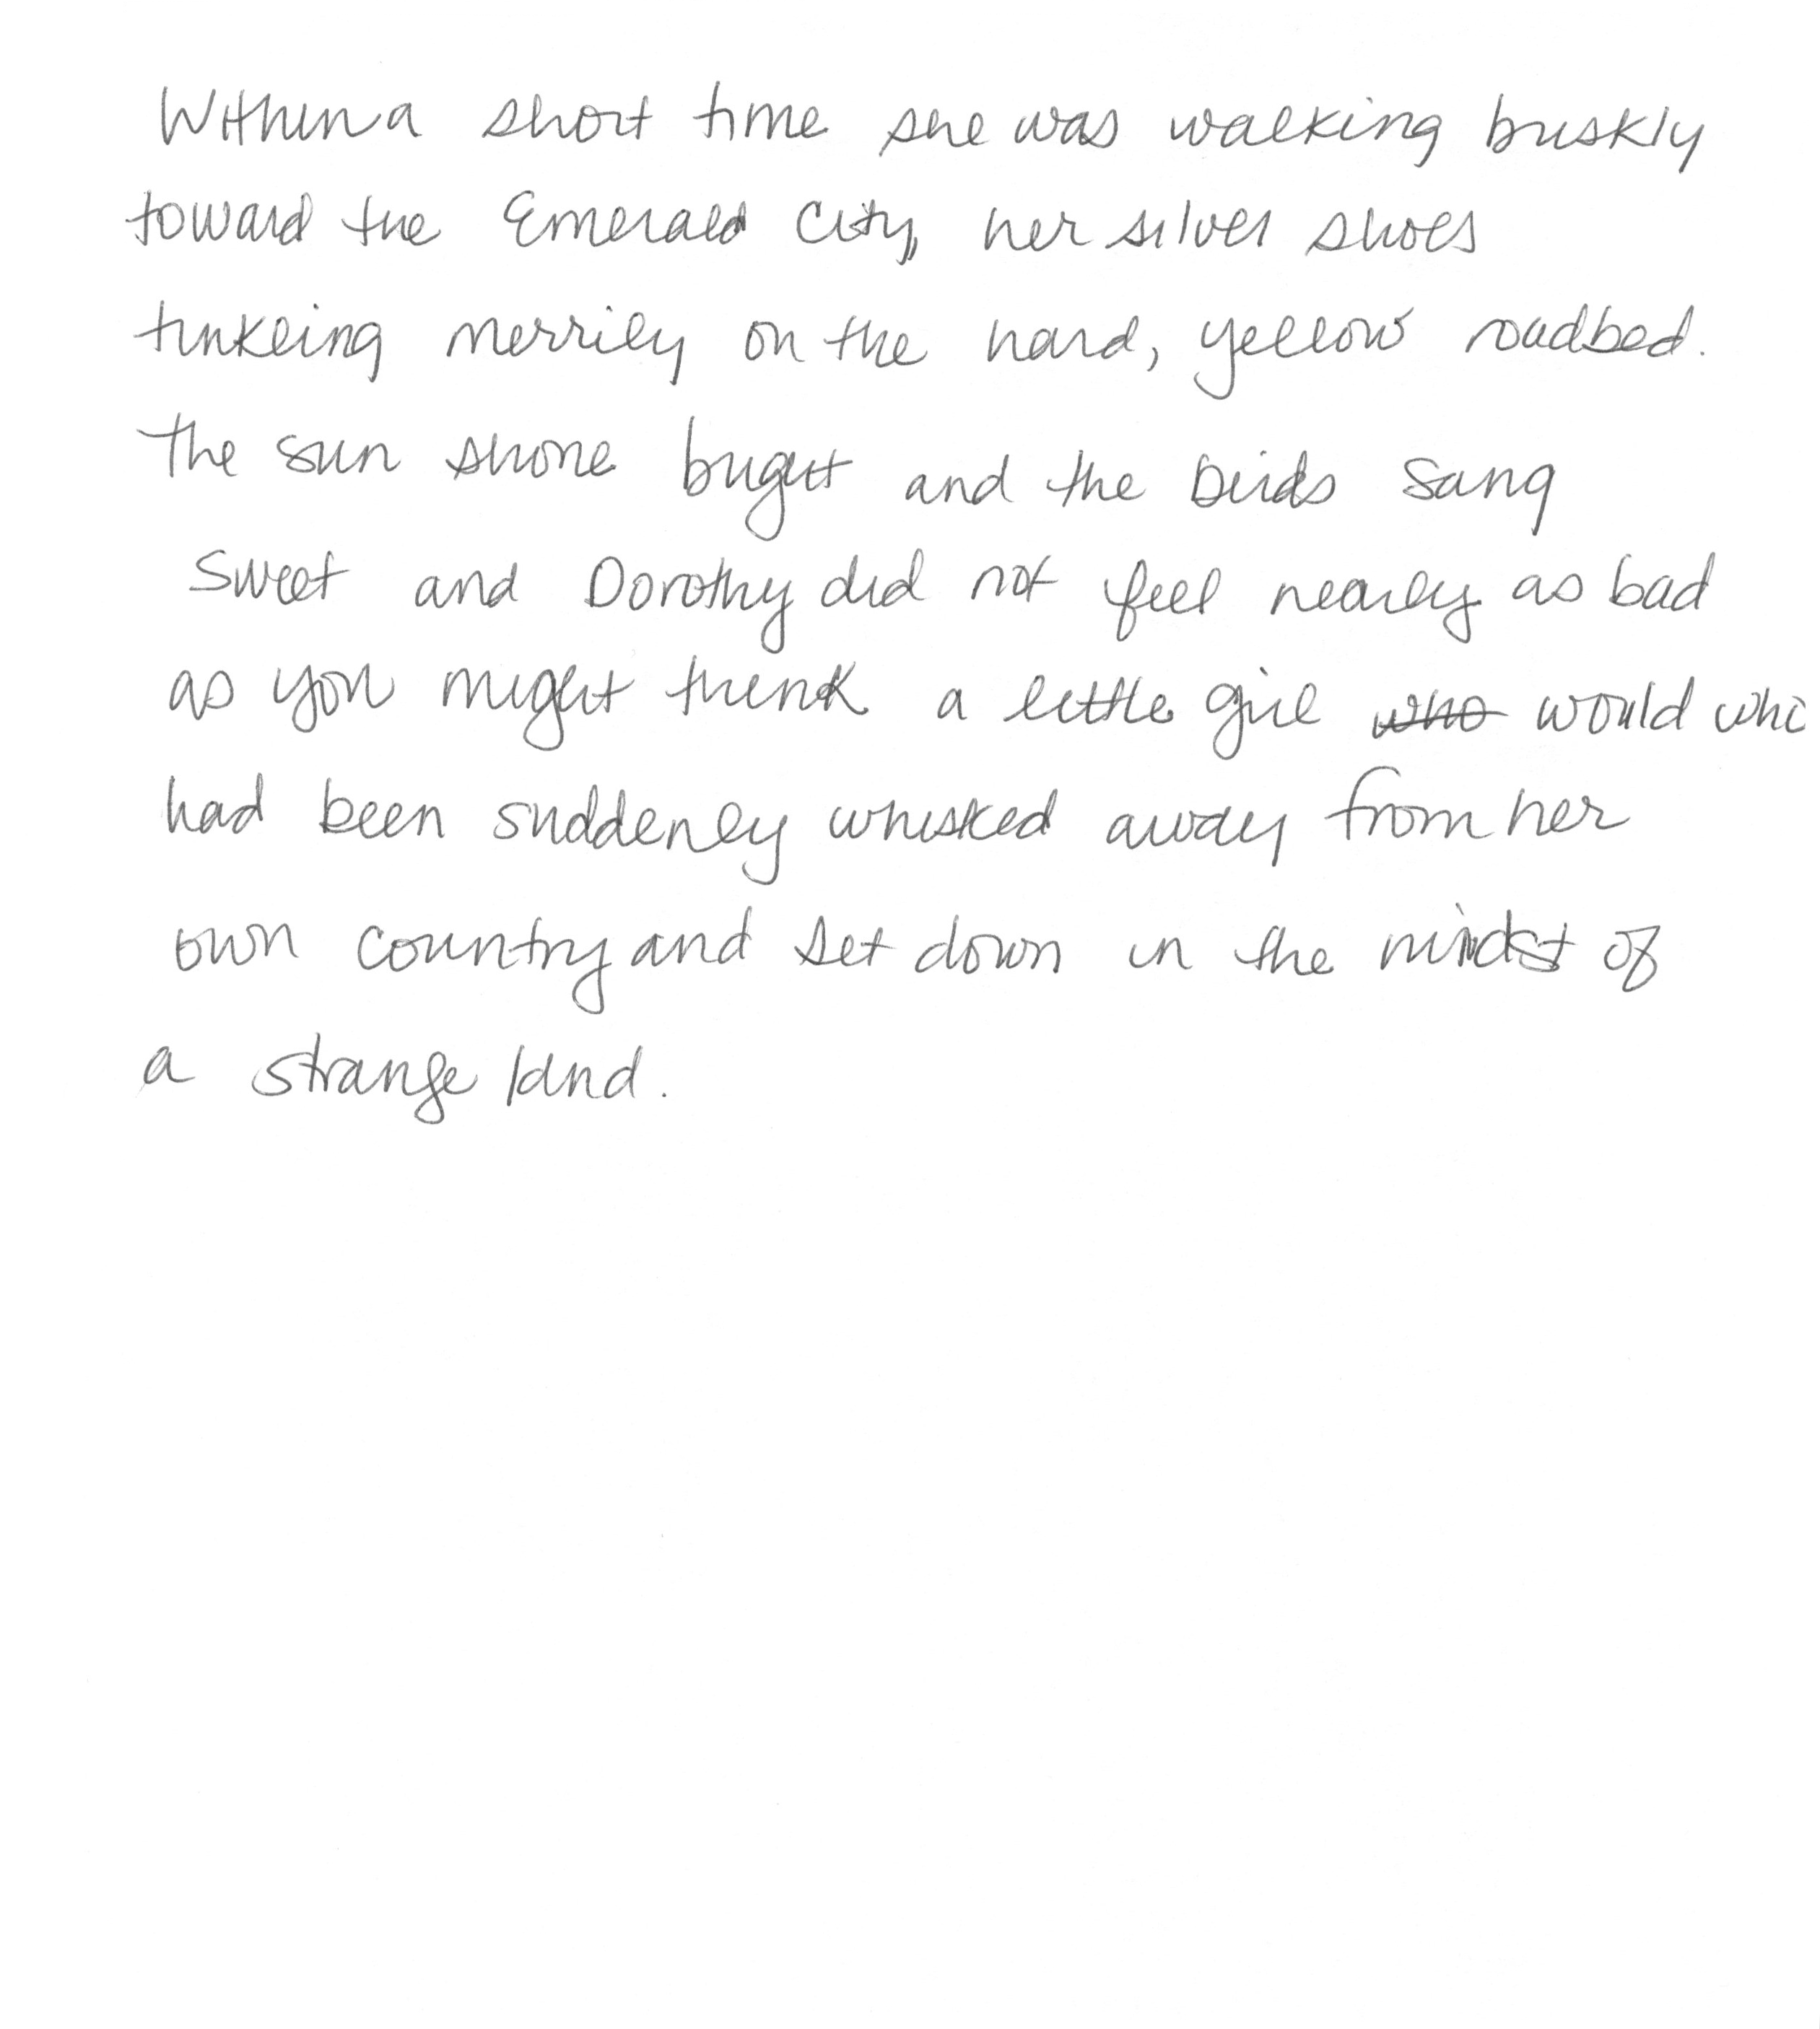 Within a short time she was walking briskly
toward the Emerald City, her silver shoes
tinkling merrily on the hard, yellow roadbed.
The sun shone bright and the birds sang
sweet and Dorothy did not feel nearly as bad
as you might think a little girl who would who
had been suddenly whisked away from her
own country and set down in the midst of
a strange land.